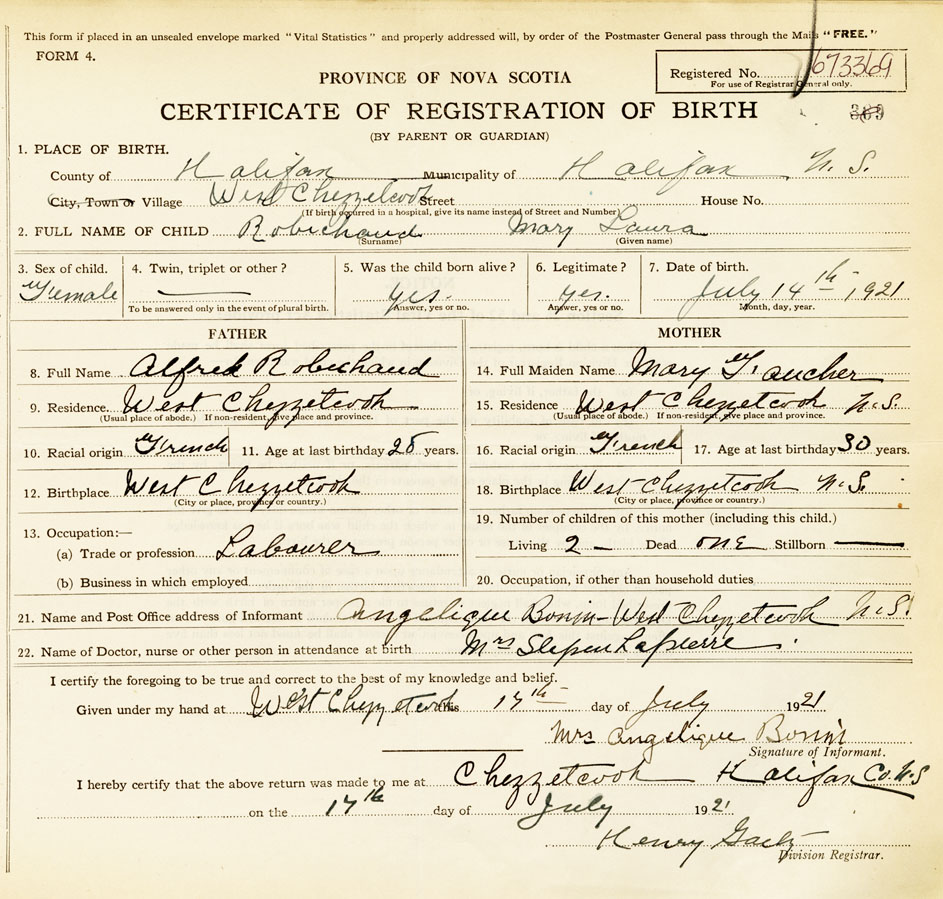 This form if placed in an unsealed envelope marked "Vital Statistics" and properly addressed will, by order of the Postmaster General pass through the Mails "FREE."
FORM 4.
Registered No. 673369
For use of Registrar General only.
PROVINCE OF NOVA SCOTIA
CERTIFICATE OF REGISTRATION OF BIRTH
(BY PARENT OR GUARDIAN)
1. PLACE OF BIRTH.
County of Halifax Municipality of Halifax N.S.
City, Town or Village West Chezzetcook Street House No.
(If birth occurred in a hospital, give its name instead of Street and Number)
2. FULL NAME OF CHILD Robichaud Mary Laura
(Surname) (Given name)
3. Sex of child. 4. Twin, triplet or other? 5. Was the child born alive? 6. Legitimate? 7. Date of birth.
Female yes. yes. July 14th 1921
To be answered only in the event of plural birth. Answer, yes or no. Answer, yes or no. Month, day, year.
FATHER
8. Full Name Alfred Robichaud
9. Residence West Chezzetcook
(Usual place of abode.) If non-resident, give place and province.
10. Racial origin French 11. Age at last birthday 28 years.
12. Birthplace West Chezzetcook
(City or place, province or country.)
13. Occupation:—
(a) Trade or profession Labourer
(b) Business in which employed
MOTHER
14. Full Maiden Name Mary Faucher
15. Residence West Chezzetcook N.S.
(Usual place of abode.) If non-resident, give place and province.
16. Racial origin French 17. Age at last birthday 30 years.
18. Birthplace West Chezzetcook N.S.
(City or place, province or country.)
19. Number of children of this mother (including this child.)
Living 2 - Dead one Stillborn
20. Occupation, if other than household duties
21. Name and Post Office address of Informant Angelique Bonin-West Chezzetcook N.S.
22. Name of Doctor, nurse or other person in attendance at birth Mrs Lapierre
I certify the foregoing to be true and correct to the best of my knowledge and belief.
Given under my hand at West Chezzetcook this 17th day of July 1921
Mrs Angelique Bonin
Signature of Informant.
I hereby certify that the above return was made to me at Chezzetcook Halifax Co. N.S
on the 17th day of July 1921
Henry
Division Registrar.